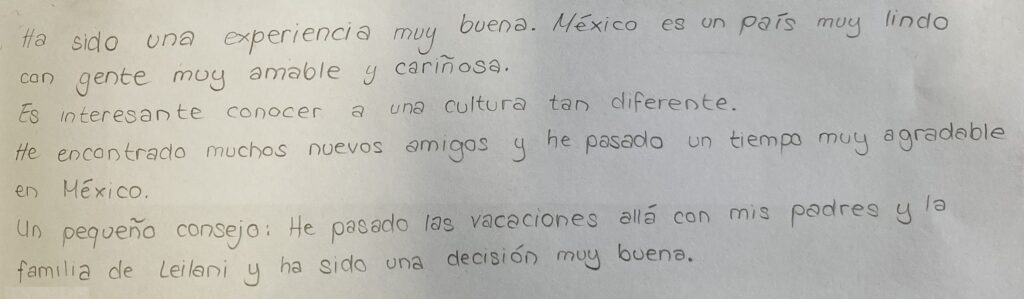 Ha sido una experiencia muy buena. México es un país muy lindo
con gente muy amable y cariñosa.
Es interesante conocer a una cultura tan diferente.
He encontrado muchos nuevos amigos y he pasado un tiempo muy agradable
en México.
Un pequeño consejo: He pasado las vacaciones allá con mis padres y la
familia de Leilani y ha sido una decisión muy buena.